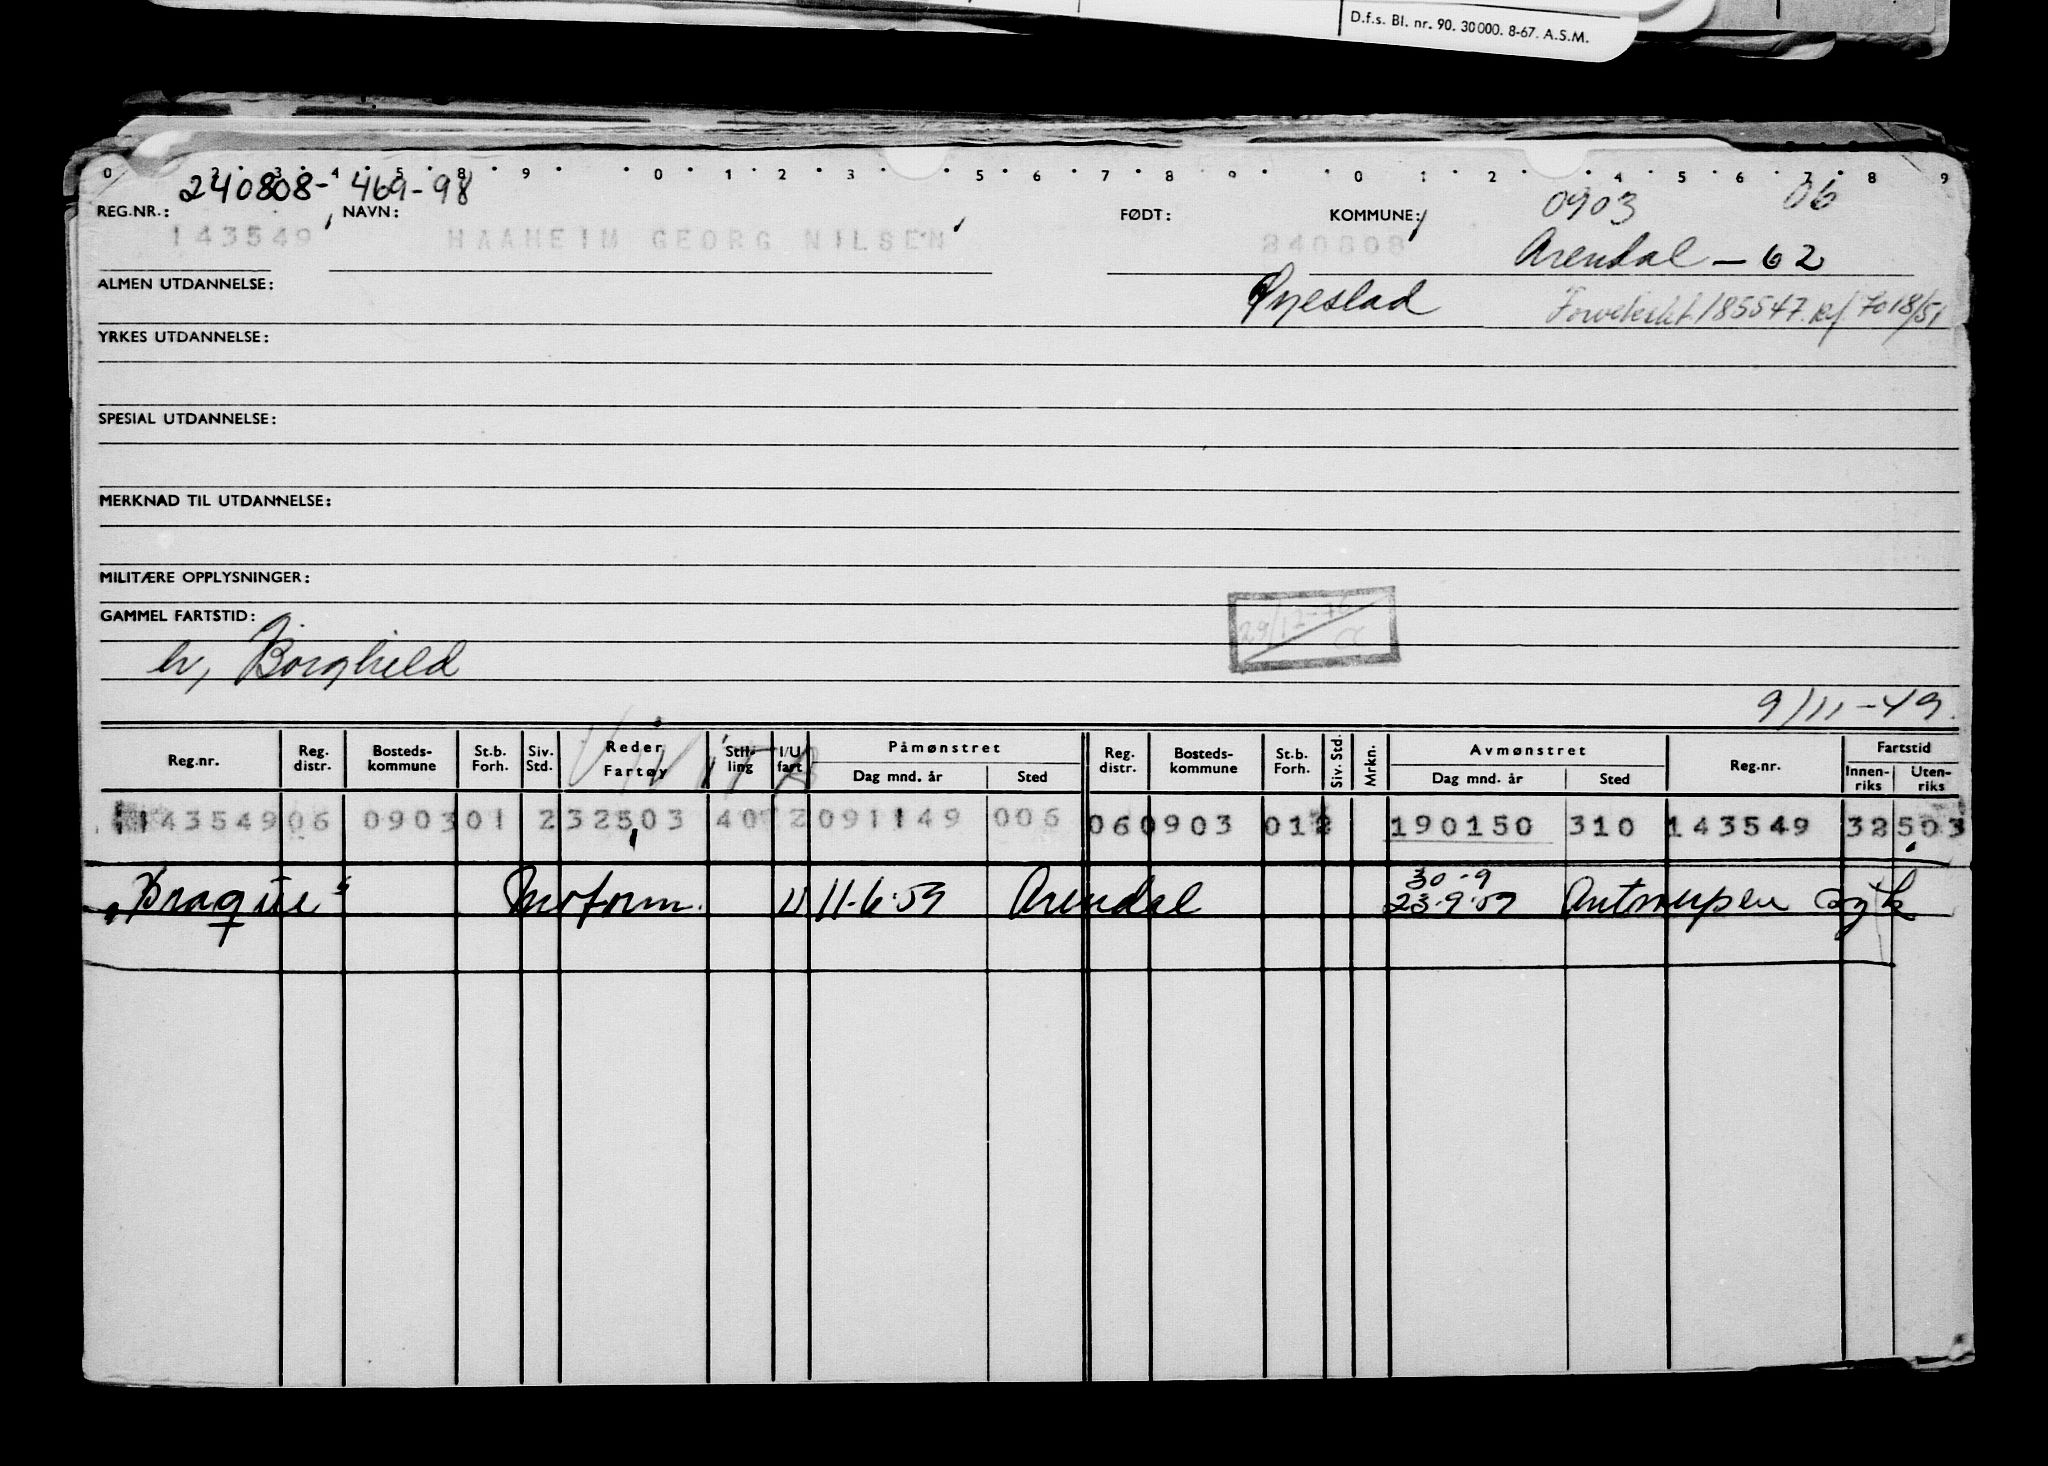 D.f.s. Bl. nr. 90. 30000. 8-67. A.S.M.
0 2 3 4 5 8 9 0 1 2 3 5 6 7 8 9 0 1 2 4 5 6 7 8 9
240808- 469-98 0903 06
REG.NR.: NAVN: FØDT: KOMMUNE:
143549 HAAHEIM GEORG NILSEN 240808 Arendal - 62
ALMEN UTDANNELSE: Øyestad 185547. 7018/51
YRKES UTDANNELSE:
SPESIAL UTDANNELSE:
MERKNAD TIL UTDANNELSE:
MILITÆRE OPPLYSNINGER:
GAMMEL FARTSTID: 29/12-76
Borghild
9/11-49.
Reg.nr. Reg. distr. Bosteds- kommune St.b. Forh. Siv. Std. Reder Fartøy Stil- ling I/U fart Påmønstret Dag mnd. år Sted Reg. distr. Bosteds- kommune St.b. Forh. Siv. Std. Mrkn. Avmønstret Dag mnd. år Sted Reg.nr. Fartstid Innen- riks Uten- riks
143549 06 0903 01 2 32503 40 2 091149 006 06 0903 01 2 190150 310 143549 32503
30-9
"Braque" U 11-6-59 Arendal 23-9-59 Antwerpen syk